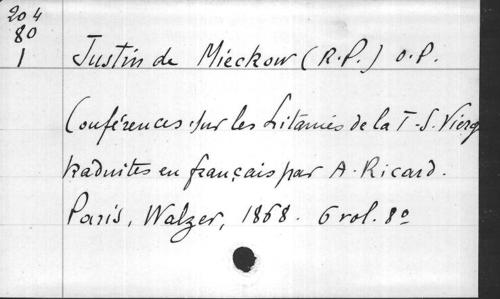 204
80
1
Justin de Mieckow (R.P.) O.P.
Conférences sur les Litanies de la T.-S. Vierg
traduites en français par A. Ricard.
Paris, Walzer, 1868. 6 vol. 8º